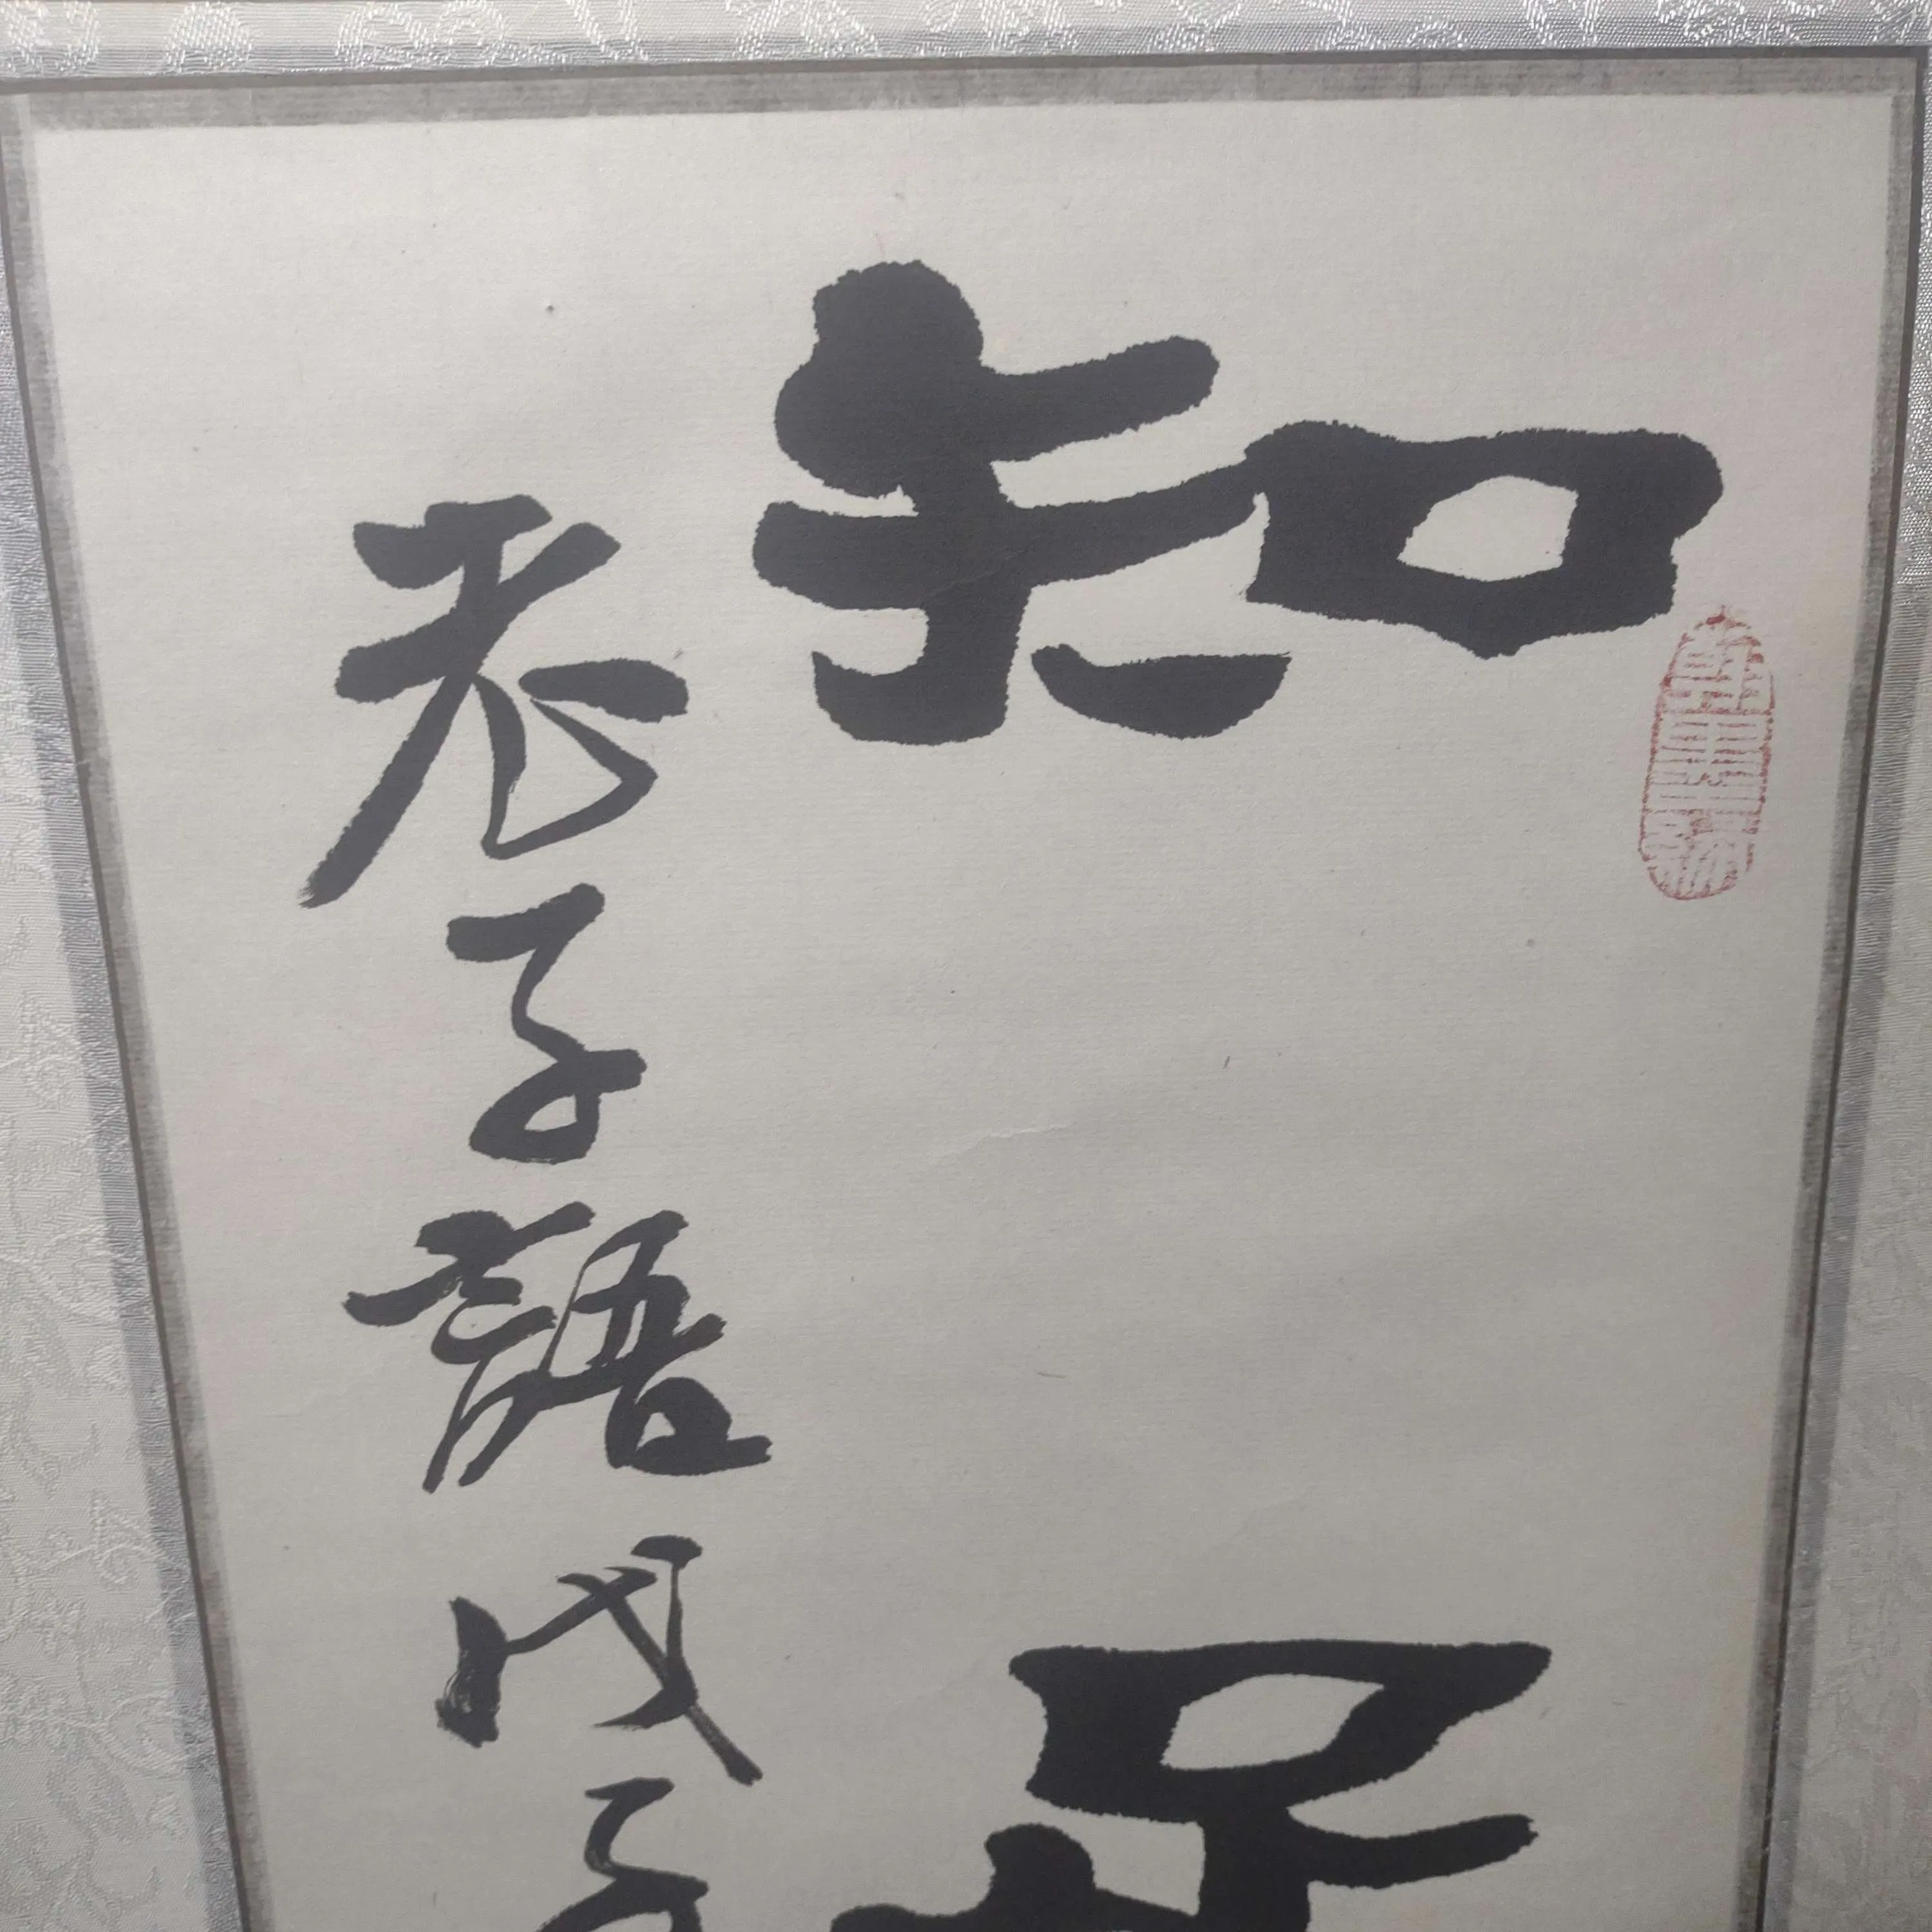 知足
老子語戊子